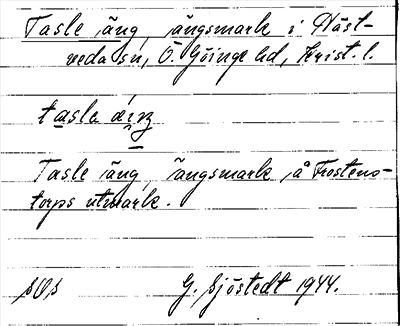 Tasle äng, ängsmark i Häst-
veda sn, Ö. Göinge hd, Krist. l.
Tasle äng, ängsmark å Frostens-
torps utmark.
sOs G. Sjöstedt 1944.